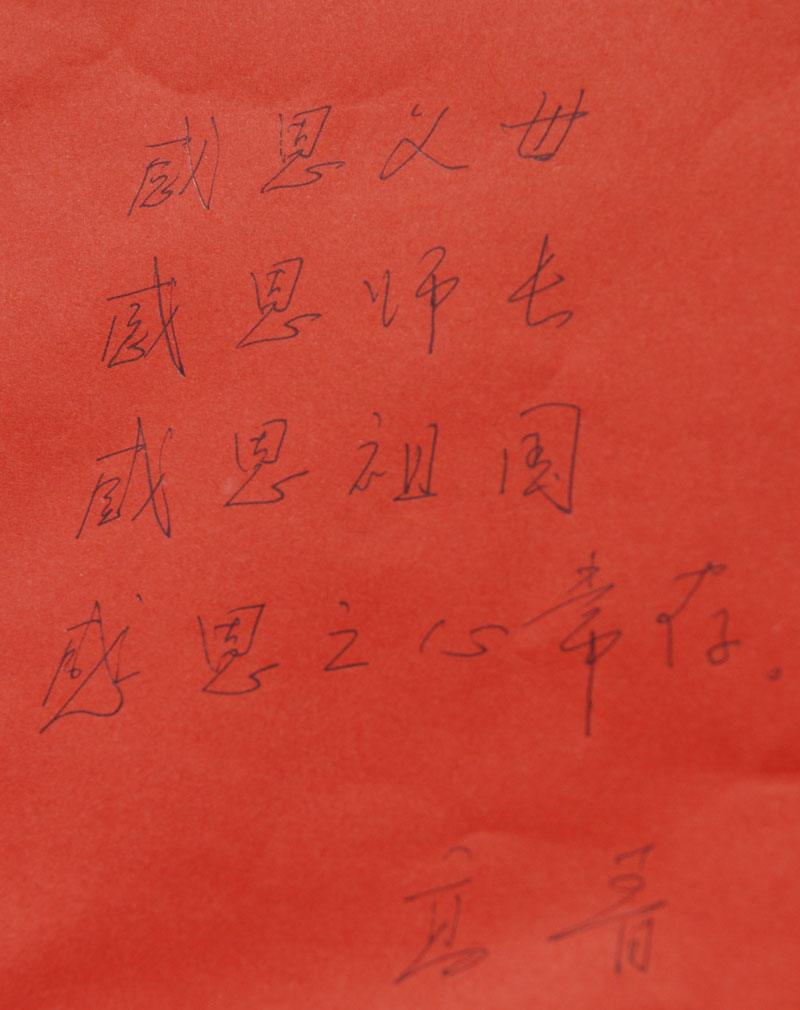 感恩父母
感恩师长
感恩祖国
感恩之心常存。